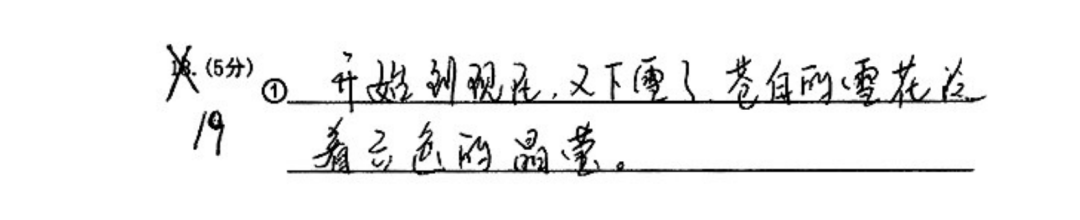 18. (5分) ① 开始到现在,又下雪了.苍白的雪花泛
19 着云色的晶莹。